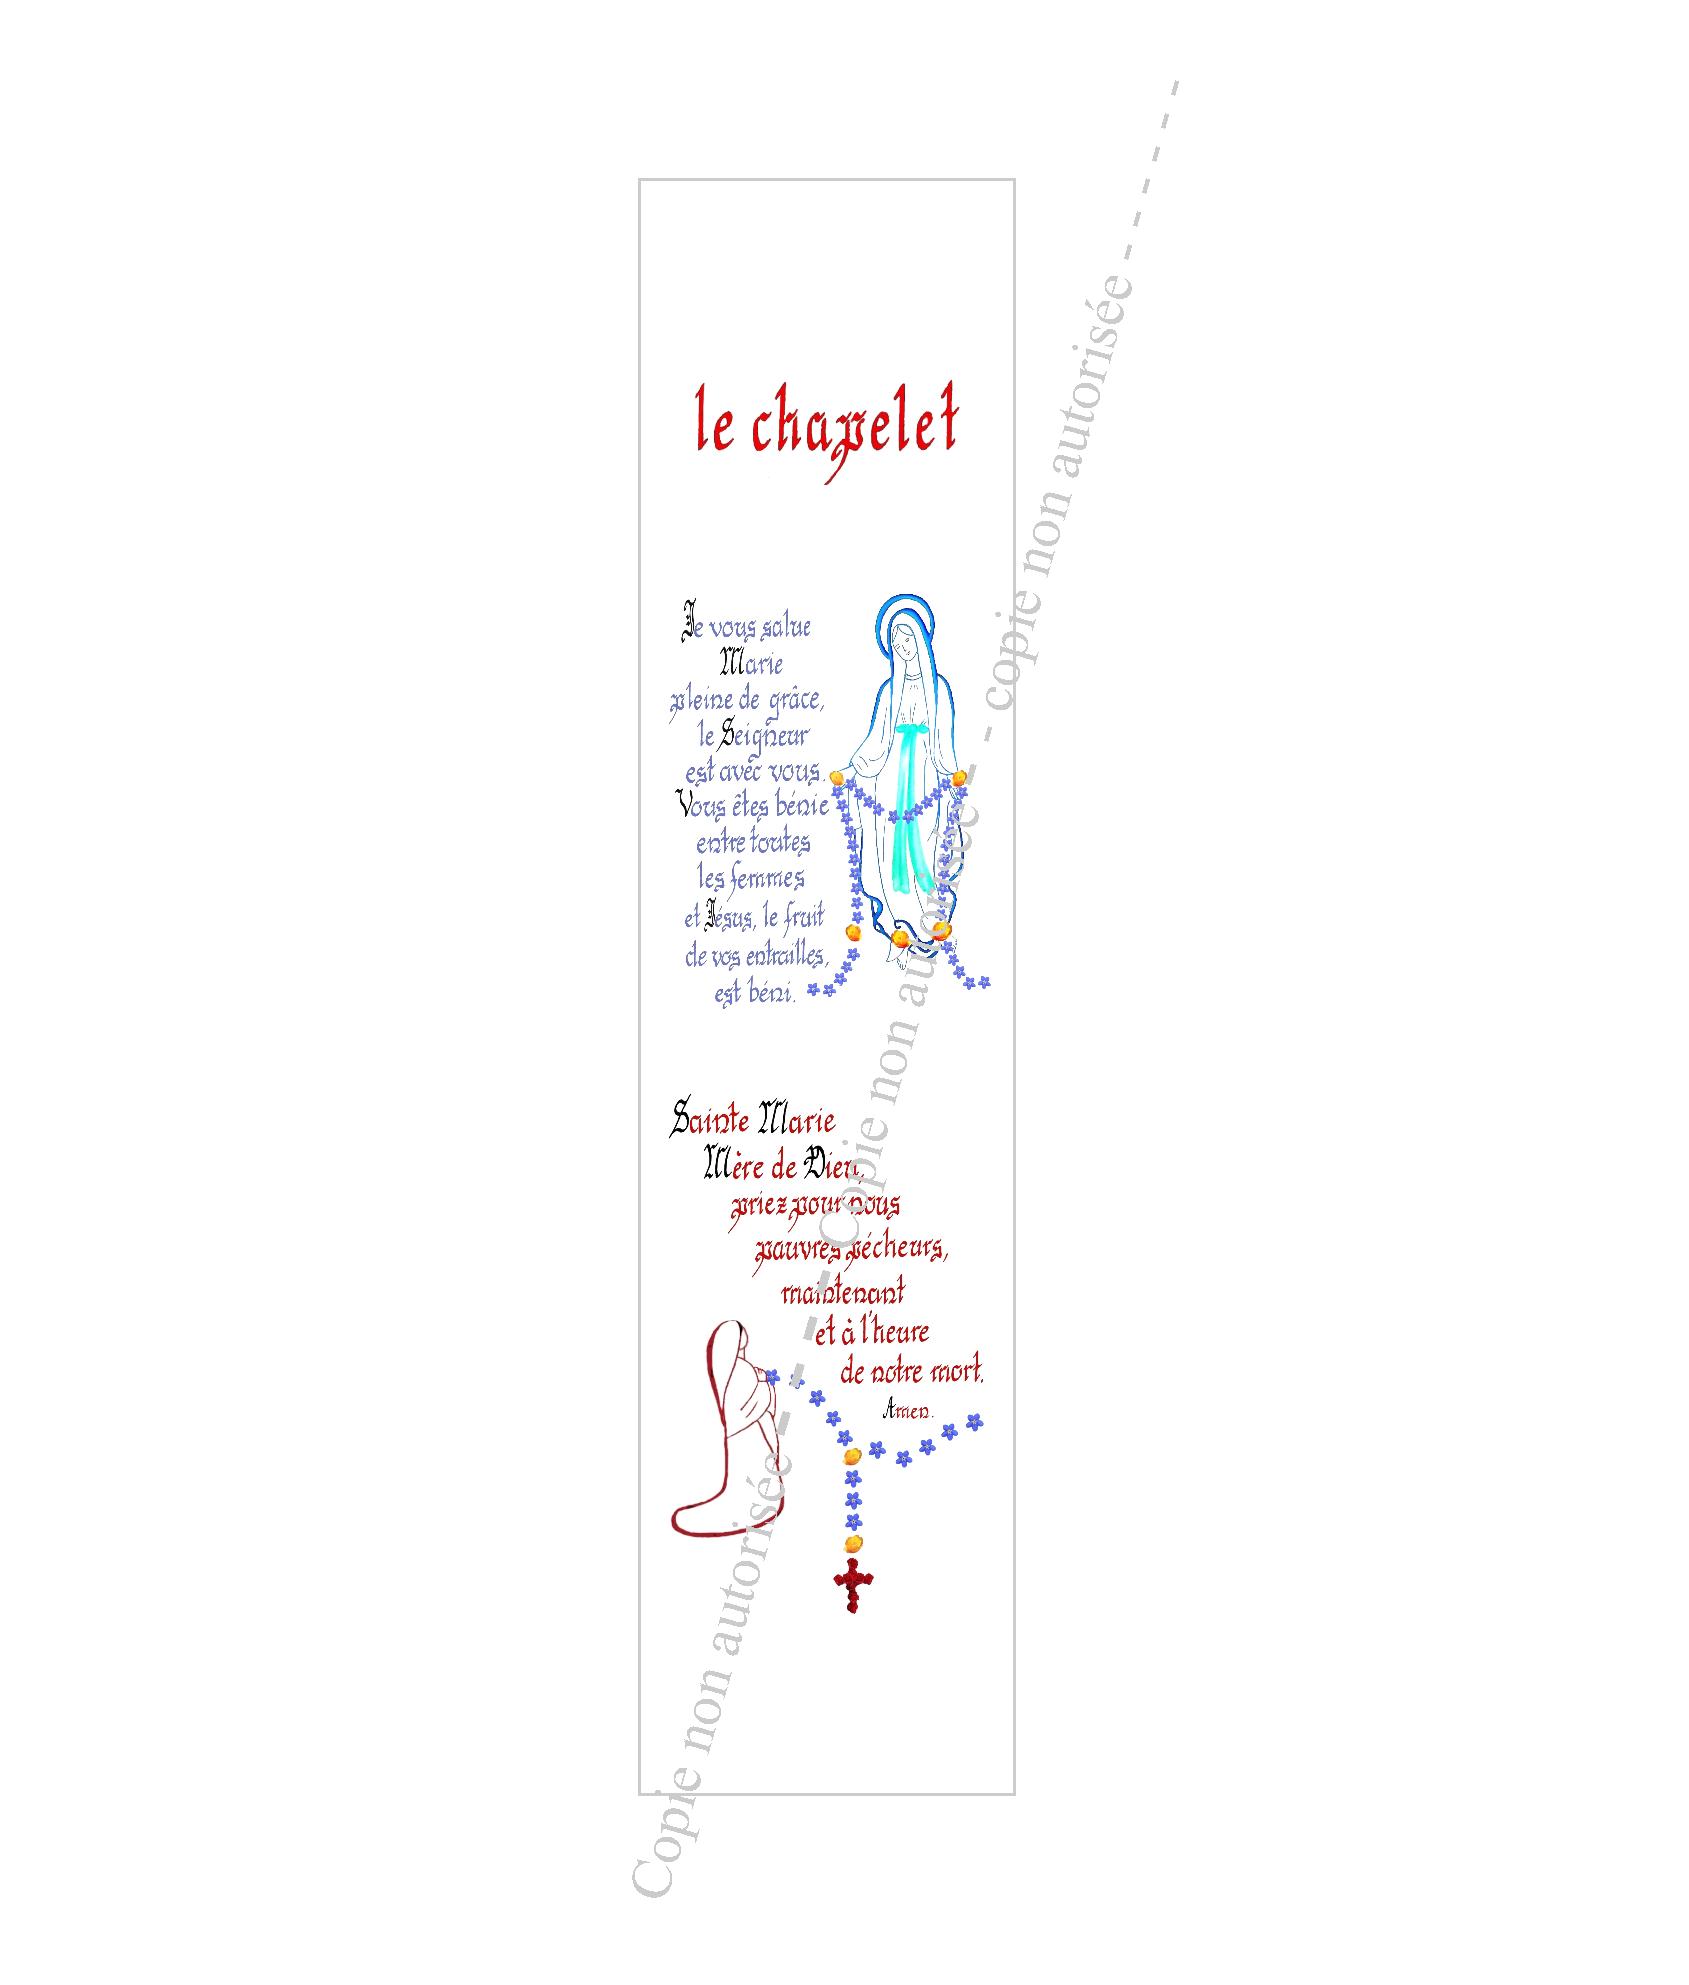 le chapelet
Je vous salue
Marie
pleine de grâce,
le Seigneur
est avec vous.
Vous êtes bénie
entre toutes
les femmes
et Jésus, le fruit
de vos entrailles,
est béni.
Sainte Marie
Mère de Dieu,
priez pour nous
pauvres pécheurs,
maintenant
et à l'heure
de notre mort.
Amen.
Copie non autorisée - - - Copie non autorisée - - copie non autorisée - - - - - -